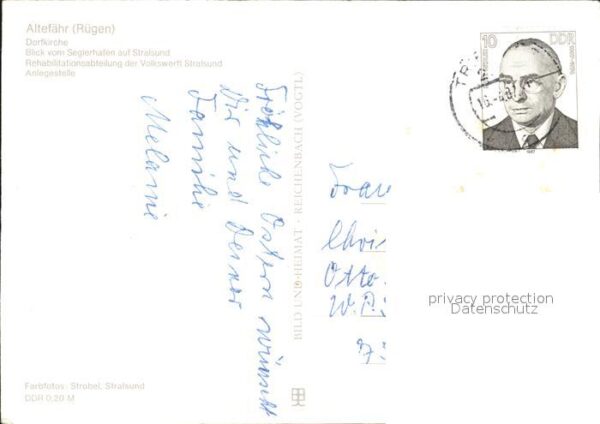 Altefähr (Rügen)
Dorfkirche
Blick vom Seglerhafen auf Stralsund
Rehabilitationsabteilung der Volkswerft Stralsund
Anlegestelle
Fröhliche Ostern wünscht
Dir und Deiner
Familie
Melanie
BILD UND HEIMAT · REICHENBACH (VOGTL)
10 DDR
1987
Frau
Chris
Otto
privacy protection
Datenschutz
Farbfotos: Strobel, Stralsund
DDR 0,20 M